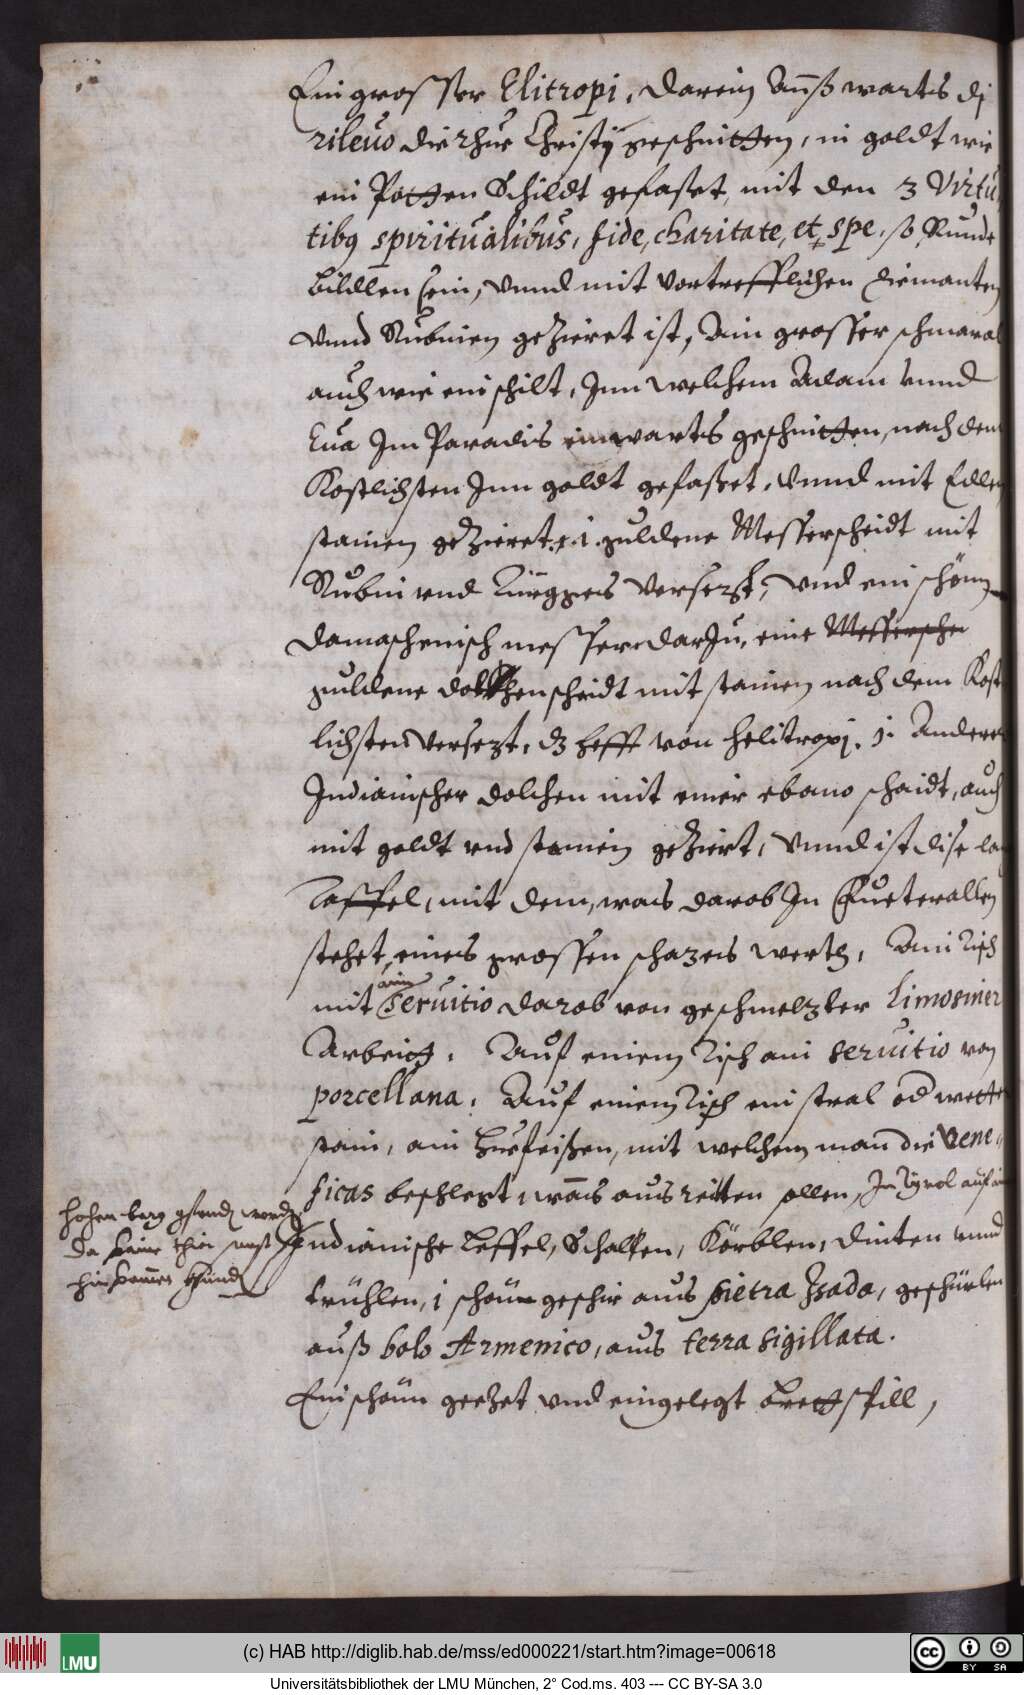 Ein grosser Elitropi, darein Außwarts di
rileuo die rhue Christy geschnitten, in goldt wie
ein Potten Schildt gefasset, mit den 3 Virtu
tibus spiritualibus, fide, charitate, et spe, so Runde
bildlen sein, vnnd mit vortrefflichen diemanten
vnnd Rubinen gezieret ist, Ain grosser schmaral
auch wie ein schilt, Jnn welchem Adam vnnd
Eua Jm Paradis einwarts geschnitten, nach dem
Kostlichsten Jnn goldt gefasset, vnnd mit Edlen
stainen gezieret. 1 guldene Messerscheidt mit
Rubin vnd Türggis versezt, vnd ein schöne
damaschenisch messer darzu, eine Messersche
guldene dolchenscheidt mit stainen nach dem Kost
lichsten versezt, dz hefft von helitropj. 1. Anderer
Jndianischer dolchen mit einer ebano schaidt, auch
mit goldt vnd stainen geziert, vnnd ist dise
Taffel, mit dem, was darob Jn Fueterallen
stehet, eines grossen schazes werth, Ain Tisch
mit ainer Seruitio darob von geschmelzter limosiner
Arbeitt. Auf einem Tisch ain seruitio von
porcellana. Auf einem Tisch ein stral od wetter
stain, ain huefeißen, mit welchem man die Vene-
ficas beschlegt, wans ausreitten sollen, Jn Tyrol auf ain
hohen berg gfunden worden,
da kaine thier sunst
hinkommen khünden
Jndianische Leffel, Schallen, Körblen, dinten vnnd
trühlen, 1 schön geschir aus pietra Jsada, geschirlen
auß bolo Armenico, aus terra sigillata.
Ein schön geezet vnd eingelegt Brettspill,
(c) HAB http://diglib.hab.de/mss/ed000221/start.htm?image=00618
LMU
CC BY SA
Universitätsbibliothek der LMU München, 2° Cod.ms. 403 --- CC BY-SA 3.0